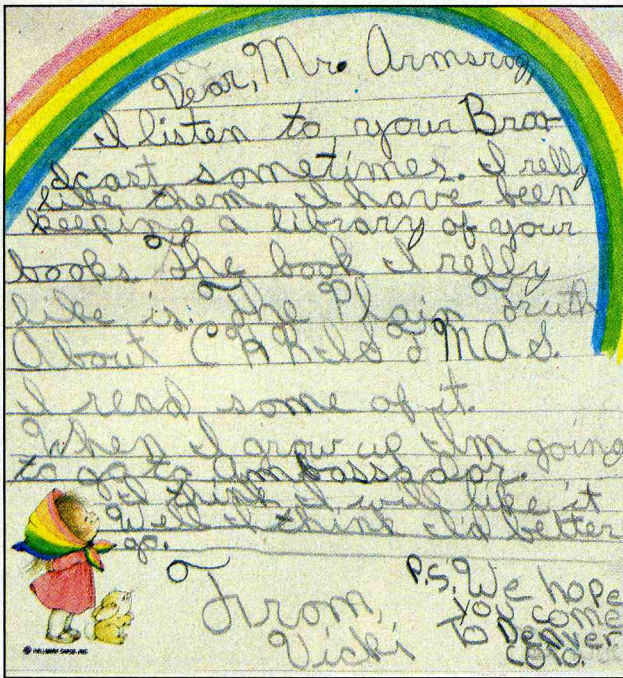 Dear, Mr. Armsrog,
I listen to your Broa-
dcast sometimes. I relly
like them. I have been
keeping a library of your
books the book I relly
like is: The Plain Truth
About CHRISTMAS.
I read some of it.
When I grow up I'm going
to go to Ambassador.
I think I will like it
Well I think I'd better
go.
From,
Vicki
P.S. We hope
you come
To Denver
Colo.